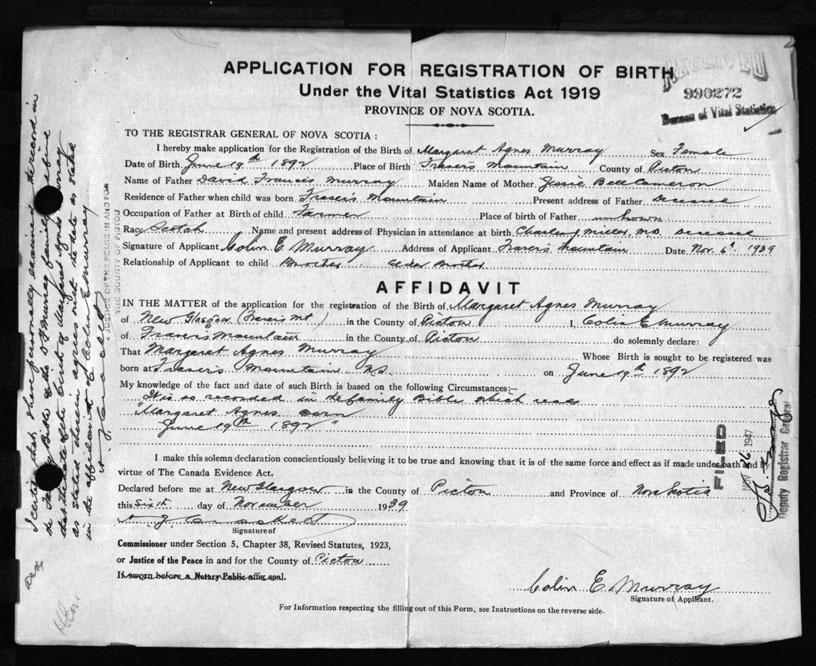 APPLICATION FOR REGISTRATION OF BIRTH
Under the Vital Statistics Act 1919
PROVINCE OF NOVA SCOTIA.
RECEIVED
990272
Bureau of Vital Statistics
TO THE REGISTRAR GENERAL OF NOVA SCOTIA :
I hereby make application for the Registration of the Birth of Margaret Agnes Murray Sex Female
Date of Birth June 19th 1892 Place of Birth Frasers Mountain County of Picton
Name of Father David Francis Murray Maiden Name of Mother Jessie Bell Cameron
Residence of Father when child was born Frasers Mountain Present address of Father Deceased
Occupation of Father at Birth of child Farmer Place of Birth of father unknown
Race Scotch Name and present address of Physician in attendance at birth Charles Miller, M.D. Deceased
Signature of Applicant Colin E. Murray Address of Applicant Frasers Mountain Date Nov. 6th 1939
Relationship of Applicant to child Brother Elder Brother
AFFIDAVIT
IN THE MATTER of the application for the registration of the Birth of Margaret Agnes Murray
of New Glasgow (Frasers Mt) in the County of Picton I, Colin E Murray
of Frasers Mountain in the County of Picton do solemnly declare:
That Margaret Agnes Murray Whose Birth is sought to be registered was
born at Frasers Mountain N.S. on June 19th 1892
My knowledge of the fact and date of such Birth is based on the following Circumstances;—
It is as recorded in the family Bible which reads
"Margaret Agnes Born
June 19th 1892"
I make this solemn declaration conscientiously believing it to be true and knowing that it is of the same force and effect as if made under oath and by
virtue of The Canada Evidence Act.
Declared before me at New Glasgow in the County of Picton and Province of Nova Scotia
this sixth day of November 1939
Signature of
Commissioner under Section 5, Chapter 38, Revised Statutes, 1923,
or Justice of the Peace in and for the County of Picton
If sworn before a Notary Public affix seal.
Colin E. Murray
Signature of Applicant.
For Information respecting the filling out of this Form, see Instructions on the reverse side.
I certify that I have personally examined the record in
the Family Bible of the D F Murray family and
that the date of the birth of Margaret Agnes Murray
as stated therein agrees with the date as stated
in the application of Colin E Murray
A JUSTICE OF THE PEACE IN AND FOR
THE COUNTY OF PICTOU
FILED
1947
Deputy Registrar General